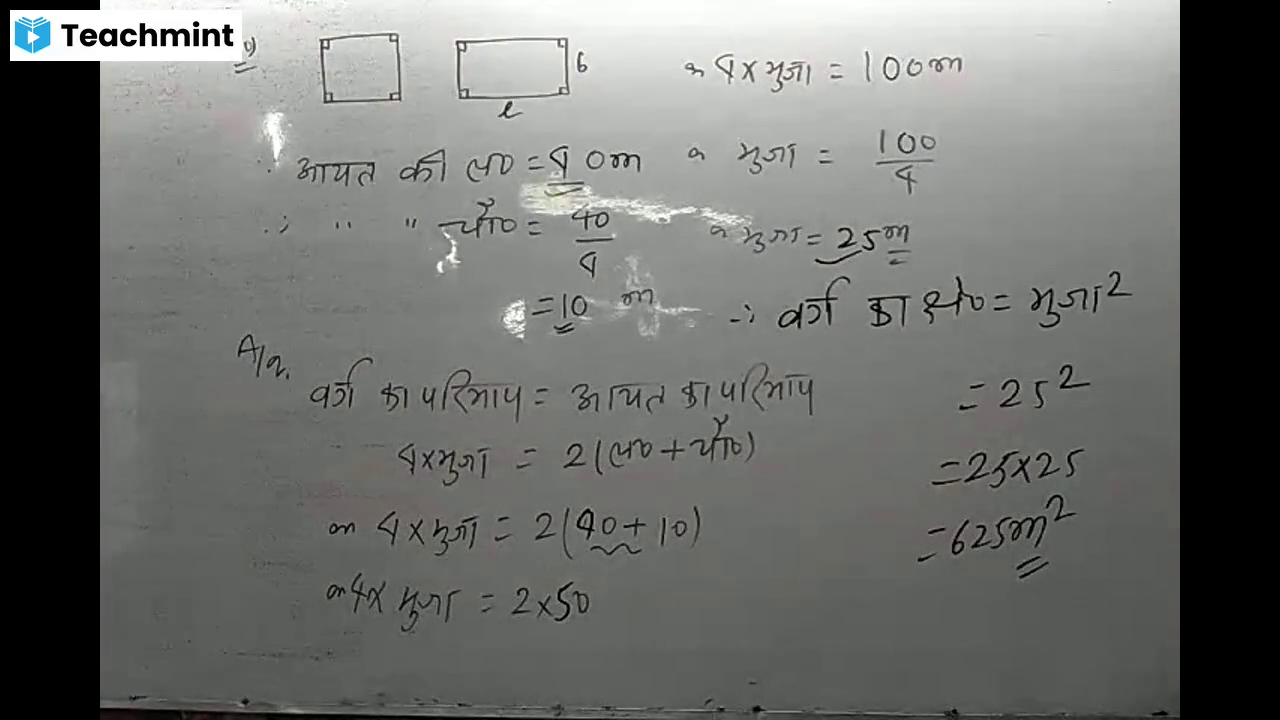 Teachmint
b
l
∴ आयत की ल० = 40m
∴ " " चौ० = 40/4
= 10 m
A/q.
वर्ग का परिमाप = आयत का परिमाप
4×भुजा = 2(ल० + चौ०)
या 4×भुजा = 2(40 + 10)
या 4× भुजा = 2×50
या 4×भुजा = 100m
या भुजा = 100/4
या भुजा = 25m
∴ वर्ग का क्षे० = भुजा²
= 25²
= 25×25
= 625m²